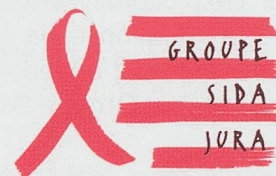 GROUPE
SIDA
JURA